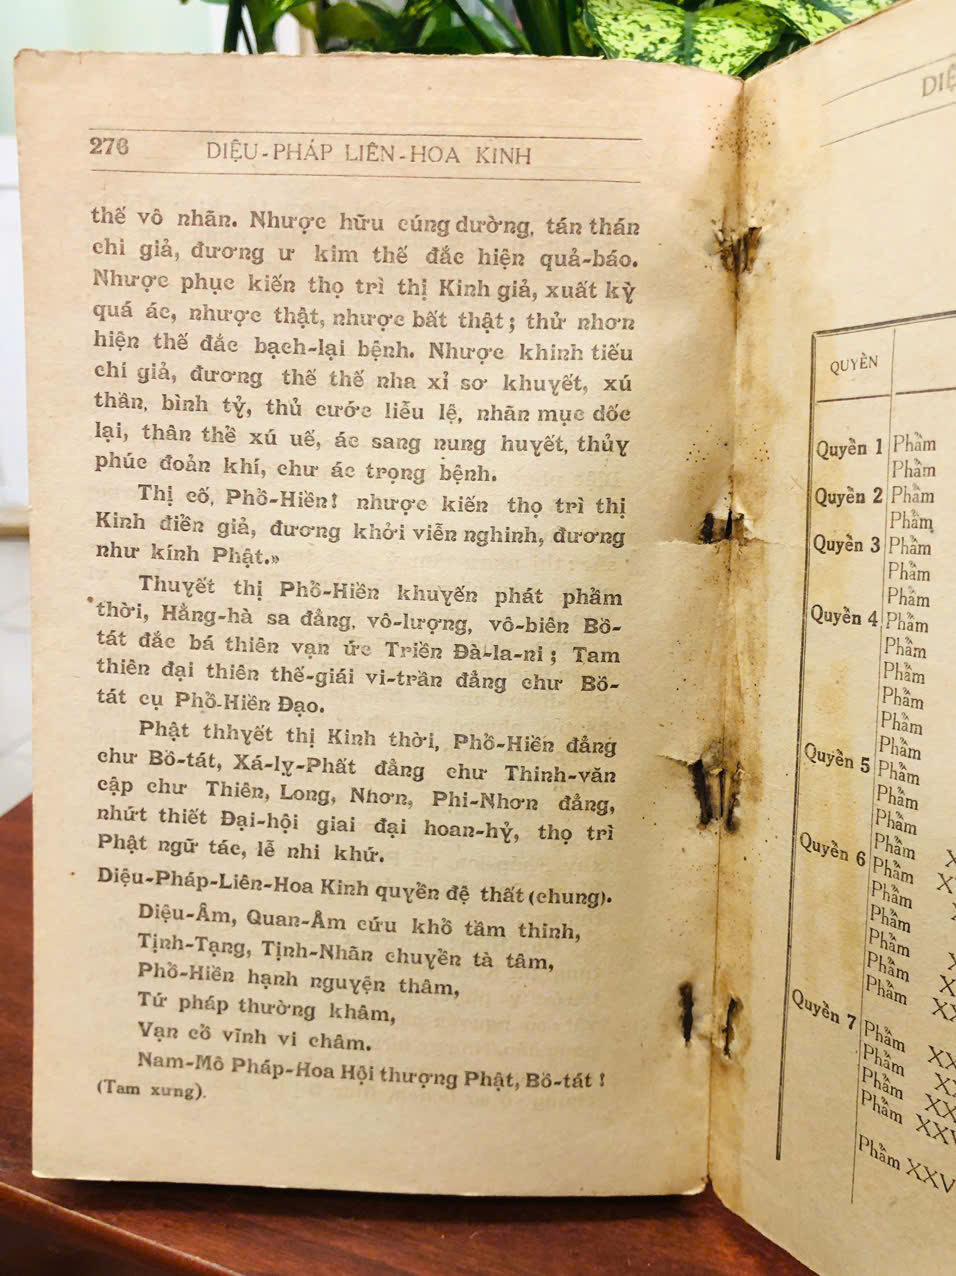 276 DIỆU-PHÁP LIÊN-HOA KINH
thế vô nhãn. Nhược hữu cúng dường, tán thán
chi giả, đương ư kim thế đắc hiện quả-báo.
Nhược phục kiến thọ trì thị Kinh giả, xuất kỳ
quá ác, nhược thật, nhược bất thật; thử nhơn
hiện thế đắc bạch-lại bệnh. Nhược khinh tiếu
chí giả, đương thế thế nha xỉ sơ khuyết, xú
thần, bình tỷ, thủ cước liễu lệ, nhãn mục dốc
lại, thân thể xú uế, ác sang nung huyết, thủy
phúc đoản khí, chư ác trọng bệnh.
Thị cố, Phổ-Hiền! nhược kiến thọ trì thị
Kinh điển giả, đương khởi viễn nghinh, đương
như kính Phật.»
Thuyết thị Phổ-Hiền khuyến phát phẩm
thời, Hằng-hà sa đẳng, vô-lượng, vô-biên Bồ-
tát đắc bá thiên vạn ức Triền Đà-la-ni; Tam
thiên đại thiên thế-giái vi-trần đẳng chư Bồ-
tát cụ Phổ-Hiền Đạo.
Phật thhyết thị Kinh thời, Phổ-Hiền đẳng
chư Bồ-tát, Xá-ly-Phất đẳng chư Thinh-văn
cập chư Thiên, Long, Nhơn, Phi-Nhơn đẳng,
nhứt thiết Đại-hội giai đại hoan-hỷ, thọ trì
Phật ngữ tác, lễ nhi khứ.
Diệu-Pháp-Liên-Hoa Kinh quyển đệ thất (chung).
Diệu-Âm, Quan-Âm cứu khổ tầm thinh,
Tịnh-Tạng, Tịnh-Nhãn chuyển tà tâm,
Phổ-Hiền hạnh nguyện thâm,
Tứ pháp thường khâm,
Vạn cổ vĩnh vi châm.
Nam-Mô Pháp-Hoa Hội thượng Phật, Bồ-tát!
(Tam xưng).
QUYỀN
Quyển 1 Phẩm
Phẩm
Quyển 2 Phẩm
Phẩm
Quyển 3 Phẩm
Phẩm
Phẩm
Quyển 4 Phẩm
Phẩm
Phẩm
Phẩm
Phẩm
Phẩm
Quyển 5 Phẩm
Phẩm
Phẩm
Quyển 6 Phẩm
Phẩm
Phẩm
Phẩm
Phẩm
Phẩm
Phẩm
Quyển 7 Phẩm
Phẩm
Phẩm
Phẩm
Phẩm